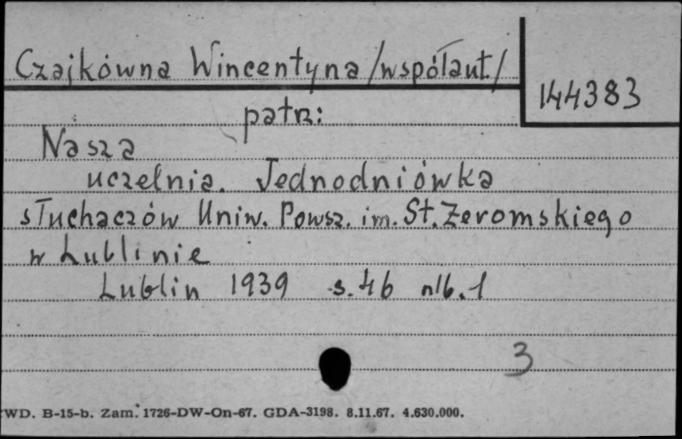 Czajkówna Wincentyna /współaut./
144383
patrz:
Nasza
uczelnia. Jednodniówka
słuchaczów Uniw. Powsz. im. St. Żeromskiego
w Lublinie
Lublin 1939 s. 46 nlb. 1
3
WD. B-15-b. Zam. 1726-DW-On-67. GDA-3198. 8.11.67. 4.630.000.